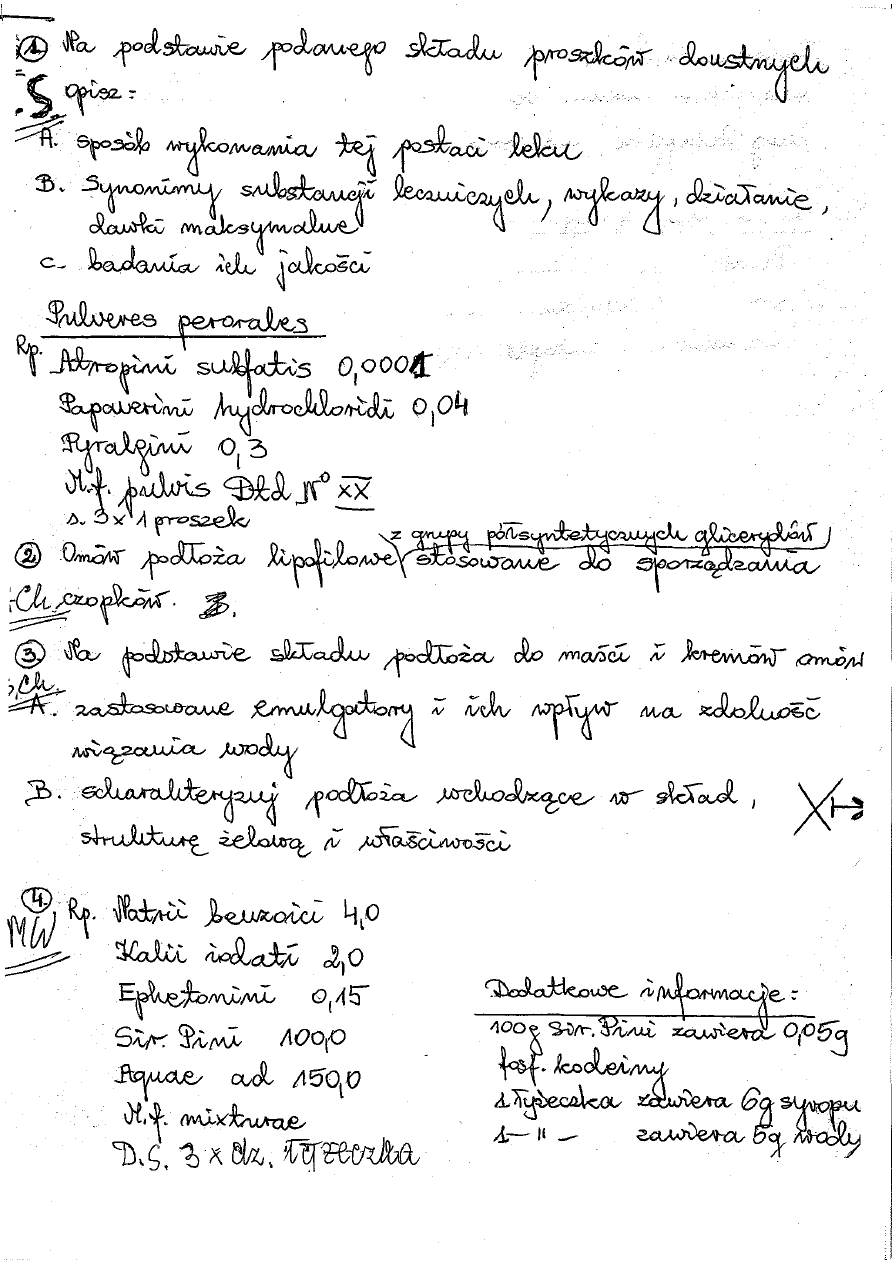 1. Na podstawie podanego składu proszków doustnych
S opisz:
A. sposób wykonania tej postaci leku
B. Synonimy substancji leczniczych, wykazy, działanie,
dawki maksymalne
C- badania ich jakości
Pulveres perorales
Rp. Atropini sulfatis 0,0001
Papaverini hydrochloridi 0,04
Pyralgini 0,3
M.f. pulvis Dtd N° XX
s. 3x1 proszek
z grupy półsyntetycznych glicerydów
2. Omów podłoża lipofilowe stosowane do sporządzania
Ch. czopków.
3. Na podstawie składu podłoża do maści i kremów omów
Ch.
A. zastosowane emulgatory i ich wpływ na zdolność
wiązania wody
B. scharakteryzuj podłoża wchodzące w skład,
strukturę żelową i właściwości
4. Rp. Natrii benzoici 4,0
MW
Kalii iodati 2,0
Ephetonini 0,15
Sir. Pini 100,0
Aquae ad 150,0
M.f. mixturae
D.S. 3 x dz. łyżeczka
Dodatkowe informacje:
100g Sir. Pini zawiera 0,05g
fosf. kodeiny
1 łyżeczka zawiera 6g syropu
1 — " — zawiera 5g wody